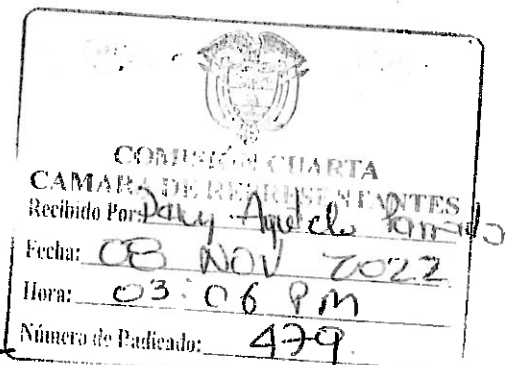 COMISIÓN CUARTA
CAMARA DE REPRESENTANTES
Recibido Por: Dary Agudelo
Fecha: 08 NOV 2022
Hora: 03:06 PM
Número de Radicado: 479